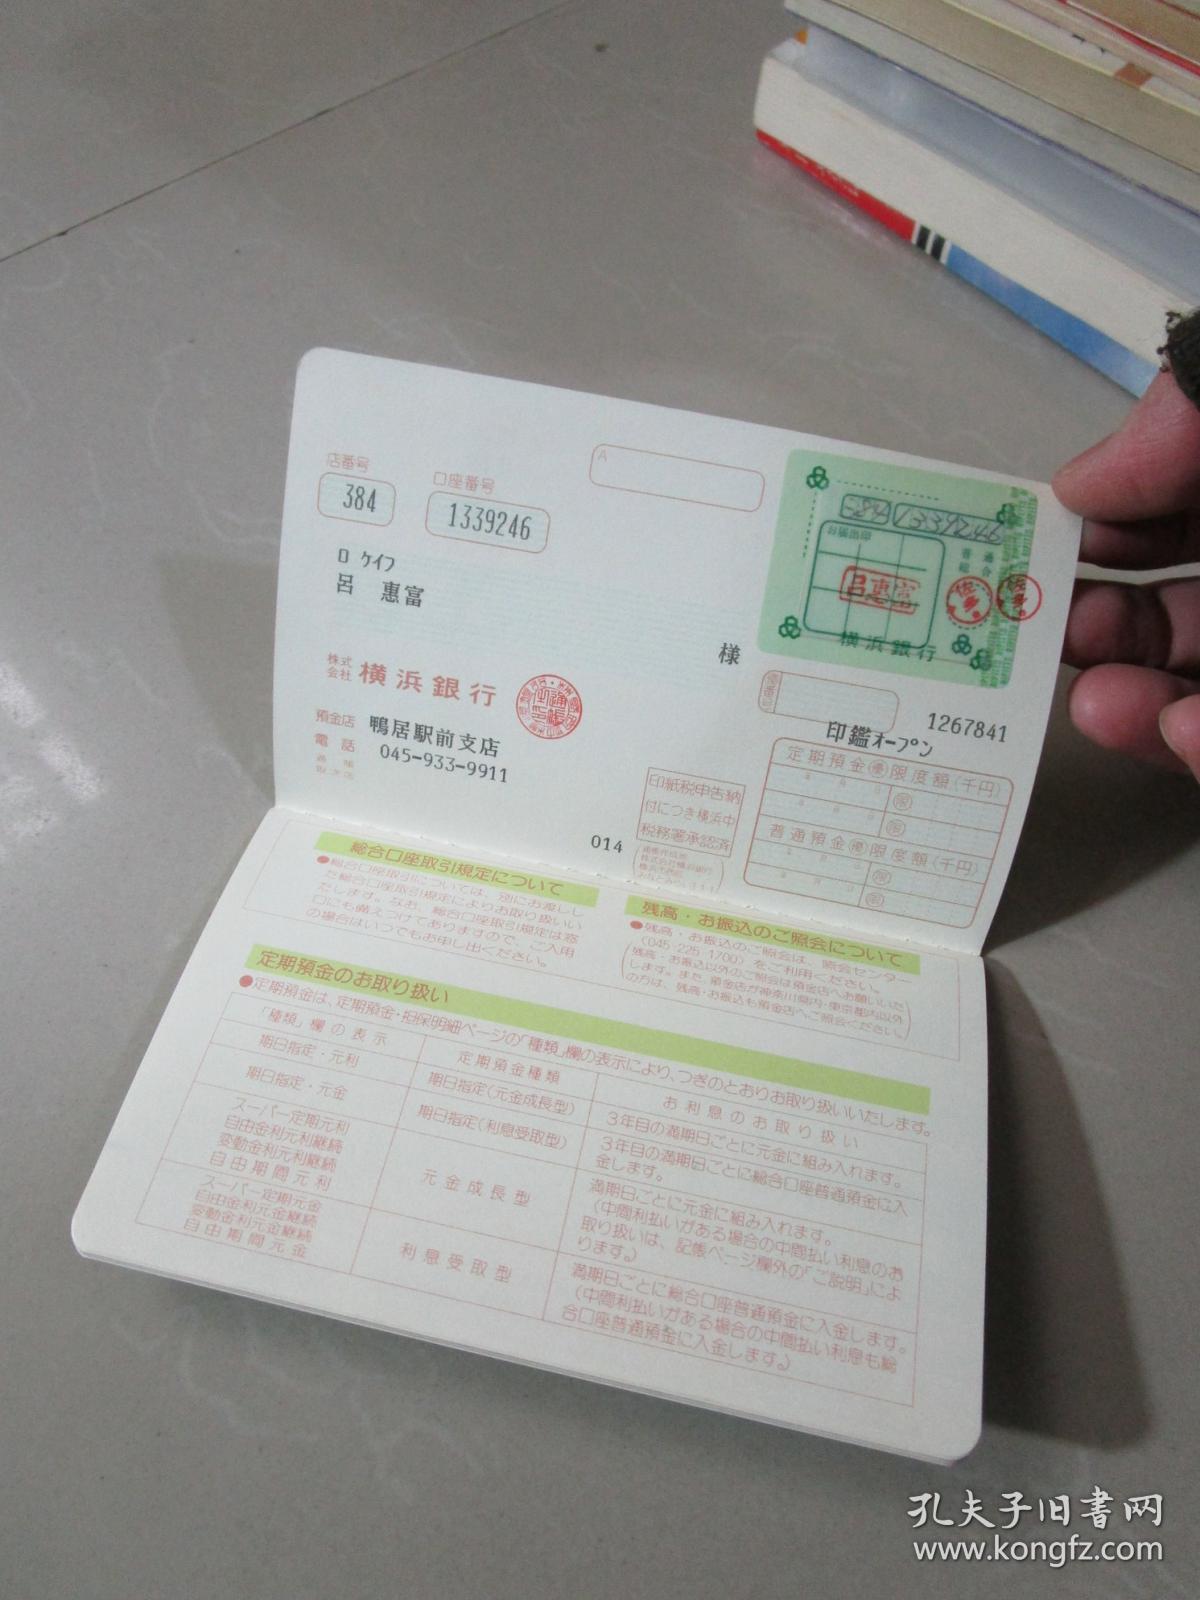 店番号
口座番号
A
384
1339246
ロ ケイフ
呂 惠富
様
384 1339246
お届出印
普通
総合
呂惠富
佐多
佐多
横浜銀行
株式会社 横浜銀行
預金店 鴨居駅前支店
電話 045-933-9911
1267841
印鑑オープン
定期預金優限度額(千円)
年 月 日 限
年 月 日 限
普通預金優限度額(千円)
年 月 日 限
年 月 日 限
印紙税申告納
付につき横浜中
税務署承認済
014
総合口座取引規定について
●総合口座取引については、別にお渡しし
た総合口座取引規定によりお取り扱いい
たします。なお、総合口座取引規定は窓
口にも備えつけてありますので、ご入用
の場合はいつでもお申し出ください。
残高・お振込のご照会について
●残高・お振込のご照会は、照会センター
(045-225-1700)をご利用ください。
残高・お振込以外のご照会は預金店へお願いいた
します。また、預金店が神奈川県内・東京都内以外
の方は、残高・お振込も預金店へご照会ください。
定期預金のお取り扱い
●定期預金は、定期預金・担保明細ページの「種類」欄の表示により、つぎのとおりお取り扱いいたします。
「種類」欄の表示
定期預金種類
お利息のお取り扱い
期日指定・元利
期日指定(元金成長型)
3年目の満期日ごとに元金に組み入れます。
期日指定・元金
期日指定(利息受取型)
3年目の満期日ごとに総合口座普通預金に入
金します。
スーパー定期元利
自由金利元利継続
変動金利元利継続
自由期間元利
元金成長型
満期日ごとに元金に組み入れます。
(中間利払いがある場合の中間払い利息のお
取り扱いは、記帳ページ欄外の「ご説明」によ
ります。)
スーパー定期元金
自由金利元金継続
変動金利元金継続
自由期間元金
利息受取型
満期日ごとに総合口座普通預金に入金します。
(中間利払いがある場合の中間払い利息も総
合口座普通預金に入金します。)
孔夫子旧书网
www.kongfz.com